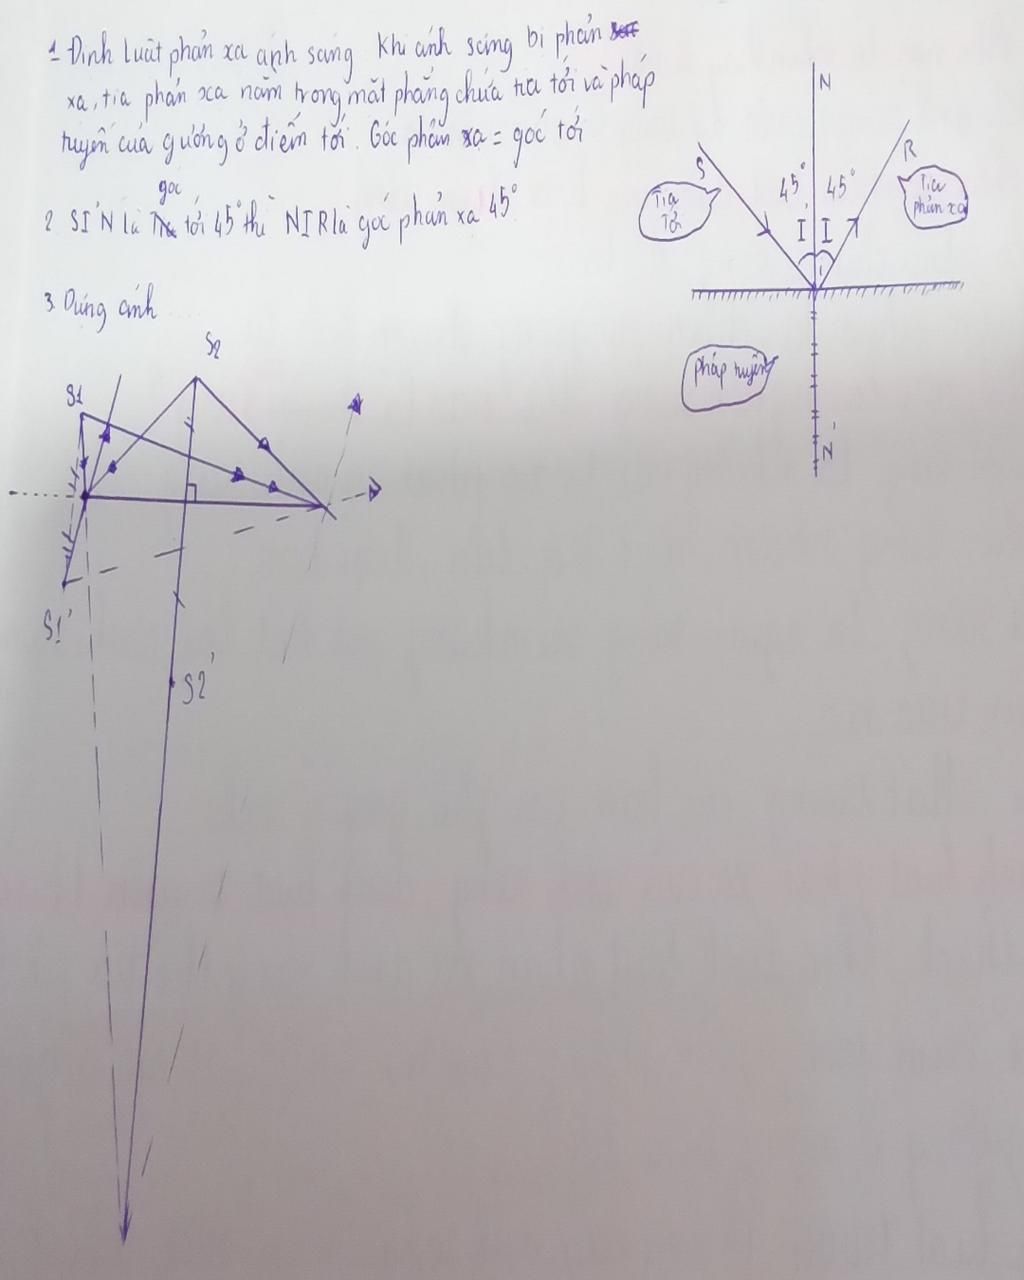 1 Định luật phản xạ ánh sáng Khi ánh sáng bị phản
xạ, tia phản xạ nằm trong mặt phẳng chứa tia tới và pháp
tuyến của gương ở điểm tới. Góc phản xạ = góc tới
góc
2 SI'N là tới 45° thì NIR là góc phản xạ 45°
3. Dựng ảnh
N
S
R
45° 45°
Tia
Tới
Tia
phản xạ
I' I
Pháp tuyến
N'
S2
S1
S1'
S2'